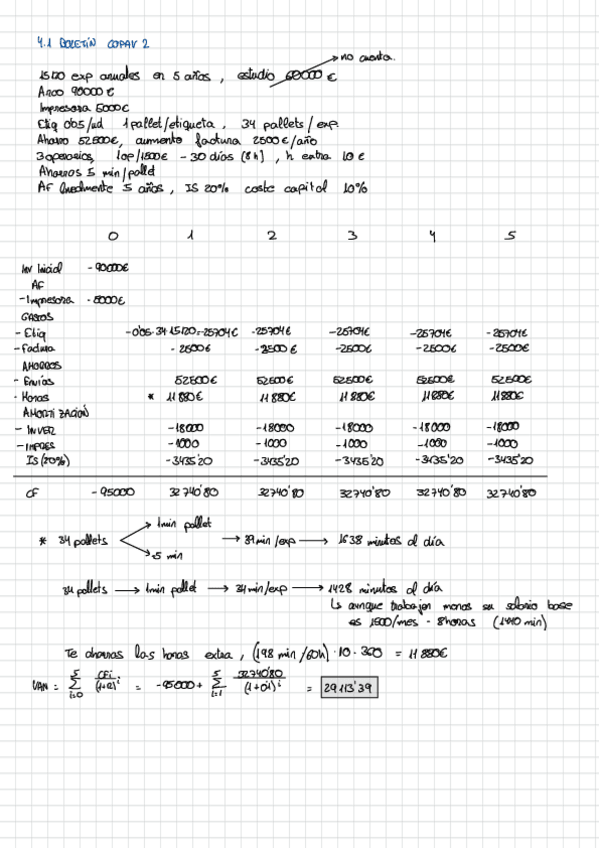 4.1 BOLETÍN COPAV 2
no cuenta.
15120 exp anuales en 5 años, estudio 60000 €
Arco 90000 €
Impresora 5000€
Etiq 0'05/ud 1 pallet/etiqueta, 34 pallets/exp.
Ahorro 52500€, aumento factura 2500€/año
3 operarios, 1op/1500€ - 30 días (8h), h extra 10€
Ahorros 5 min/pallet
AF linealmente 5 años, IS 20% coste capital 10%
0 1 2 3 4 5
Inv Inicial - 90000€
AF
- Impresora - 5000€
GASTOS
- Etiq -0'05·34·15120=-25704€ -25704€ -25704€ -25704€ -25704€
- Factura - 2500€ -2500€ -2500€ -2500€ -2500€
AHORROS
- Envías 52500€ 52500€ 52500€ 52500€ 52500€
- Horas * 11880€ 11880€ 11880€ 11880€ 11880€
AMORTIZACIÓN
- INVER -18000 -18000 -18000 -18000 -18000
- IMPRES -1000 -1000 -1000 -1000 -1000
IS (20%) -3435'20 -3435'20 -3435'20 -3435'20 -3435'20
CF - 95000 32740'80 32740'80 32740'80 32740'80 32740'80
1min pallet
* 34 pallets → 39 min/exp → 1638 minutos al día
5 min
34 pallets → 1min pallet → 34 min/exp → 1428 minutos al día
↳ aunque trabajen menos su salario base
es 1500/mes - 8horas (1440 min)
Te ahorras las horas extra, (198 min/60h)·10·360 = 11880€
VAN = 5 Σ i=0 CFi/(1+a)^i = -95000 + 5 Σ i=1 32740'80/(1+0'1)^i = 29113'39